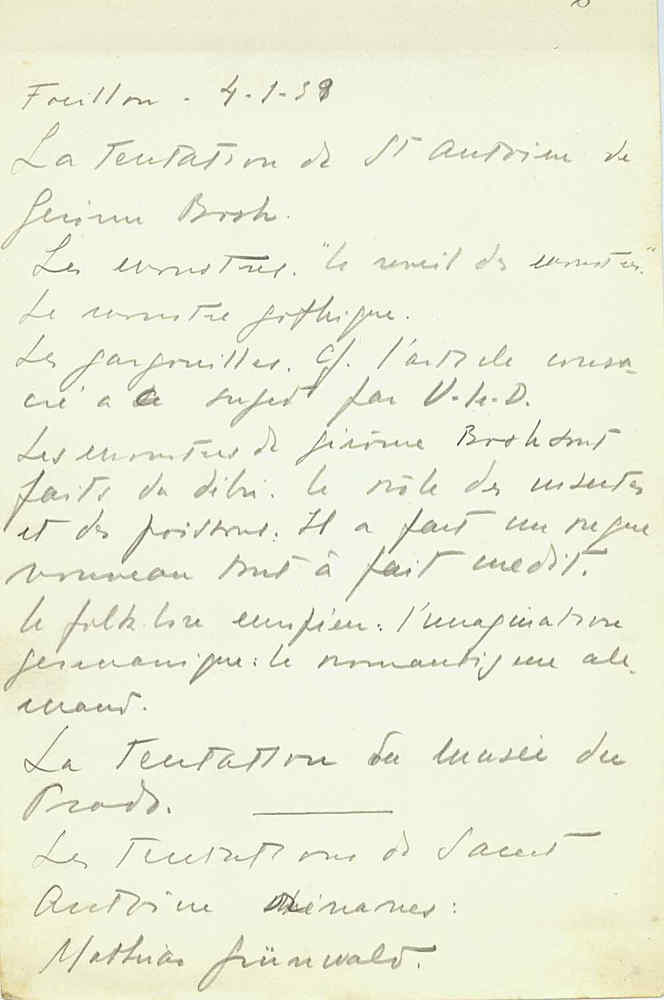 Focillon - 4-1-38
La Tentation de St Antoine de
Gerome Bosh.
Les monstres. "le reveil des monstres."
Le monstre gothique.
Les gargouilles. Cf. l'article consa-
cré a ce sujet par V-le-D.
Les monstres de Girome Bosh sont
faits du débri. le rôle des insectes
et des poissons. Il a fait un règne
nouveau tout à fait inedit.
le folk-lore européen: l'imagination
germanique: le romantisme ale-
mand.
La Tentation du Musée du
Prado.
Les Tentations de Saint
Antoine rhénanes:
Mathias Grünwald.